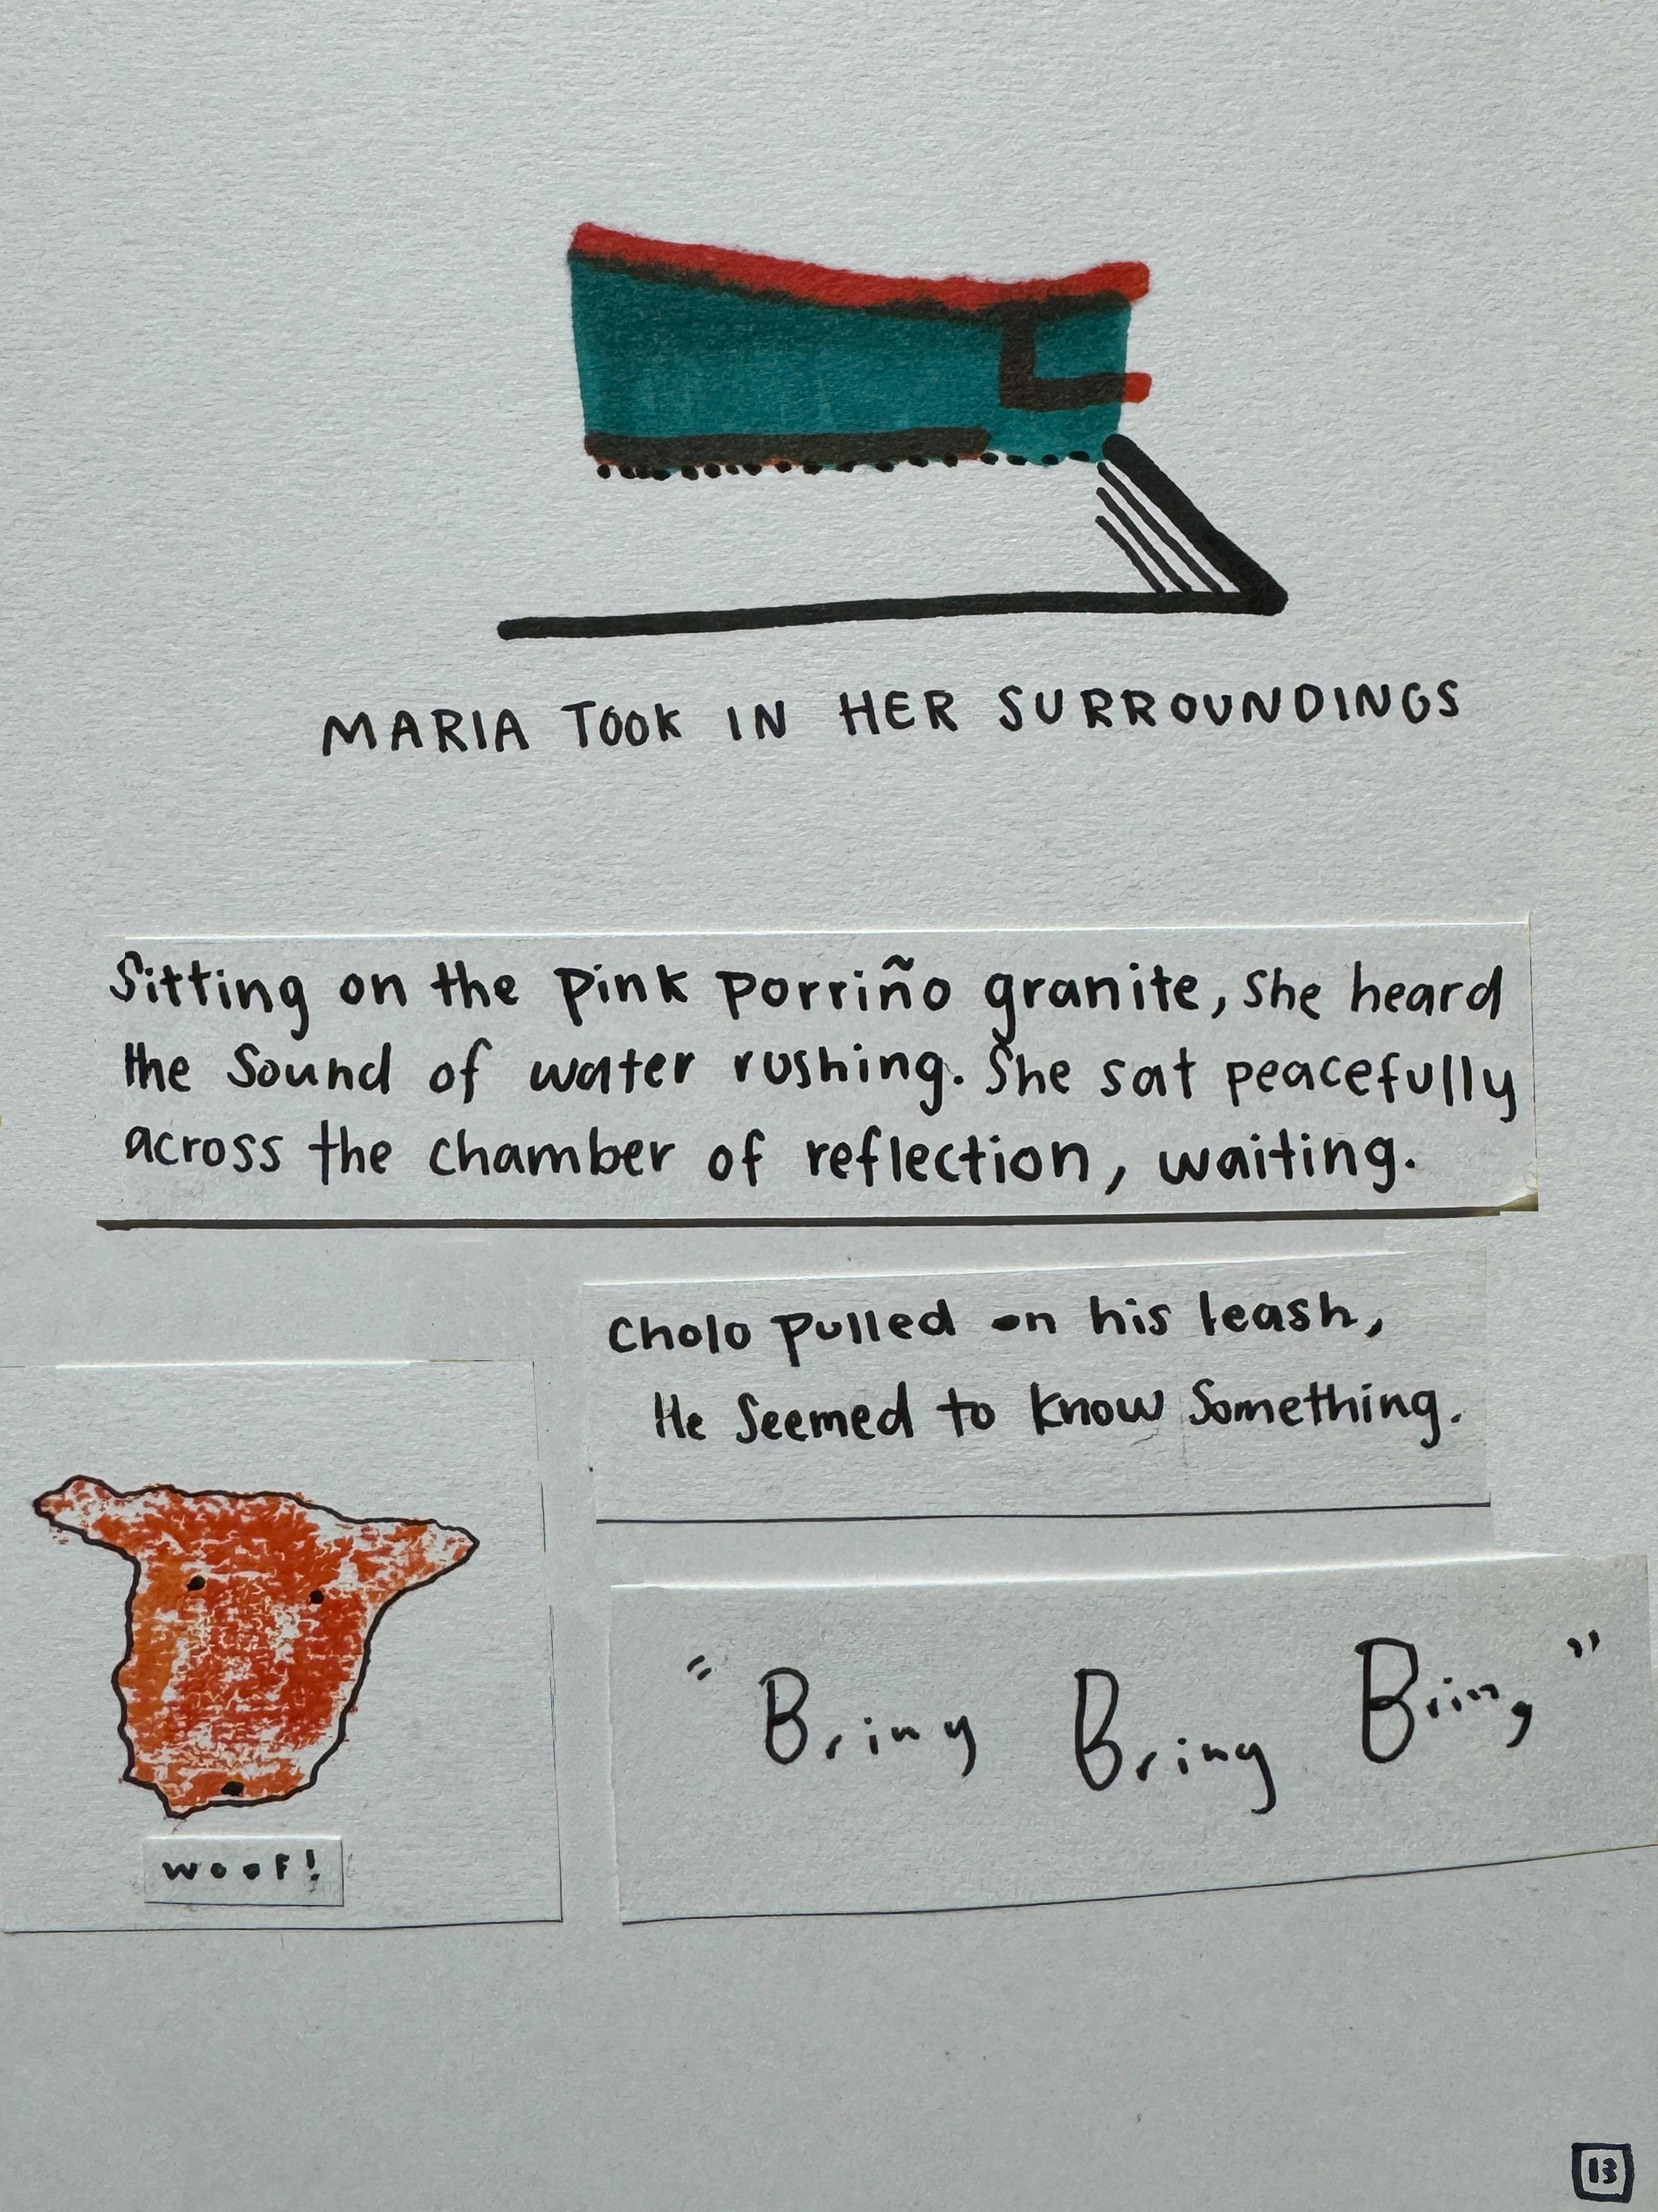 MARIA TOOK IN HER SURROUNDINGS
Sitting on the pink porriño granite, she heard
the sound of water rushing. She sat peacefully
across the chamber of reflection, waiting.
Cholo pulled on his leash,
He seemed to know something.
woof!
"Bring Bring Bring"
13